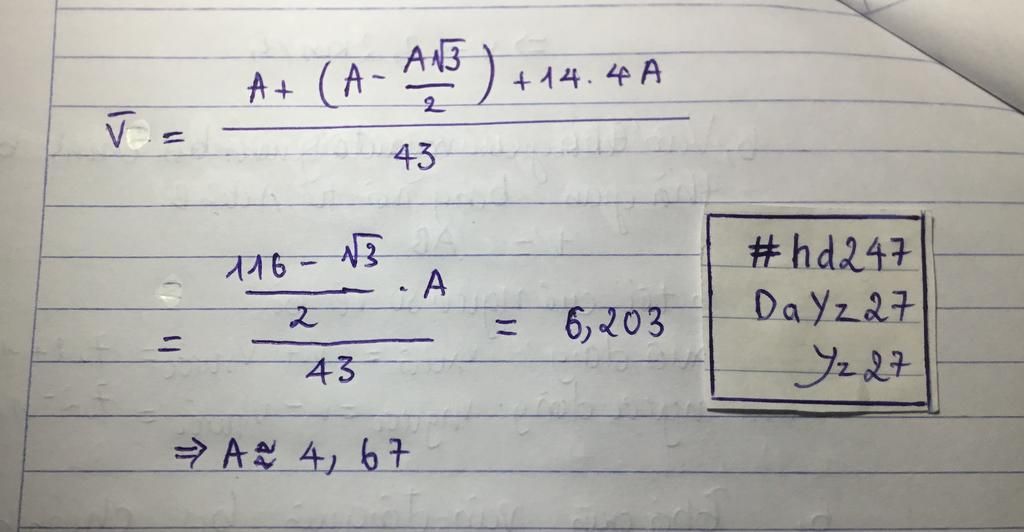 V̄ = (A + (A - A√3/2) + 14.4A)/43
= ((116 - √3)/2 . A)/43 = 6,203
⇒ A ≈ 4,67
#hd247
DaYz27
Yz27